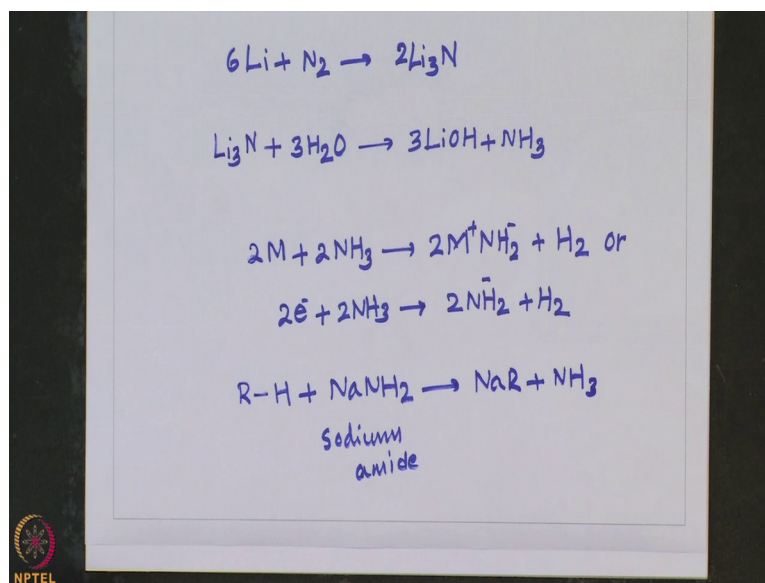 6Li + N₂ → 2Li₃N
Li₃N + 3H₂O → 3LiOH + NH₃
2M + 2NH₃ → 2M⁺NH₂⁻ + H₂ or
2e⁻ + 2NH₃ → 2NH₂⁻ + H₂
R-H + NaNH₂ → NaR + NH₃
Sodium
amide
NPTEL